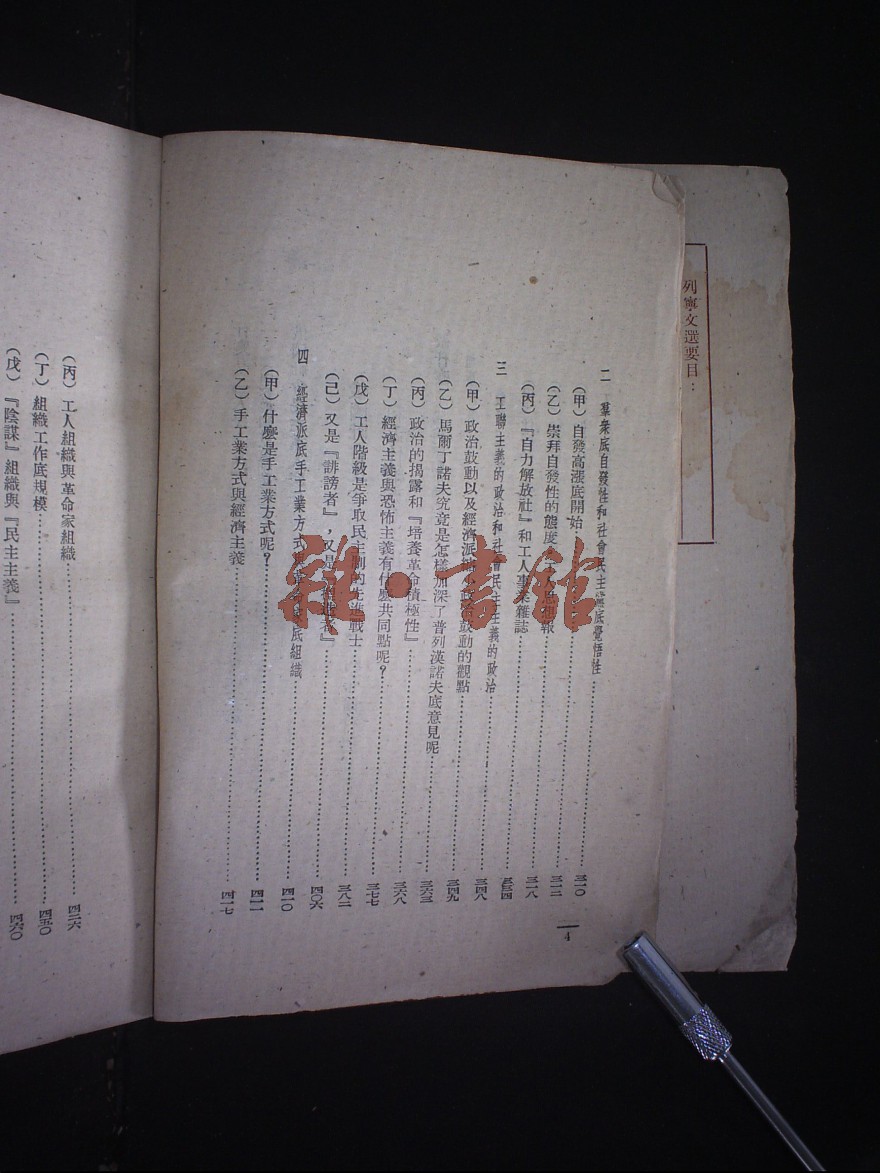 列寧文選要目：
二　羣衆底自發性和社會民主黨底覺悟性
（甲）自發高漲底開始 三一〇
（乙）崇拜自發性的態度 三一二
（丙）『自力解放社』和工人事業雜誌 三一八
三　工聯主義的政治和社會民主主義的政治 三三四
（甲）政治鼓動以及經濟派縮小政治鼓動的觀點 三三八
（乙）馬爾丁諾夫究竟是怎樣加深了普列漢諾夫底意見呢 三四九
（丙）政治的揭露和『培養革命積極性』 三六三
（丁）經濟主義與恐怖主義有什麼共同點呢？ 三六八
（戊）工人階級是爭取民主制的先進戰士 三七七
（己）又是『誹謗者』，又是 三八二
四　經濟派底手工業方式 底組織 四〇六
（甲）什麼是手工業方式呢？ 四一〇
（乙）手工業方式與經濟主義 四一一
四一七
4
（丙）工人組織與革命家組織 四二六
（丁）組織工作底規模 四五〇
（戊）『陰謀』組織與『民主主義』 四六〇
雜·書館